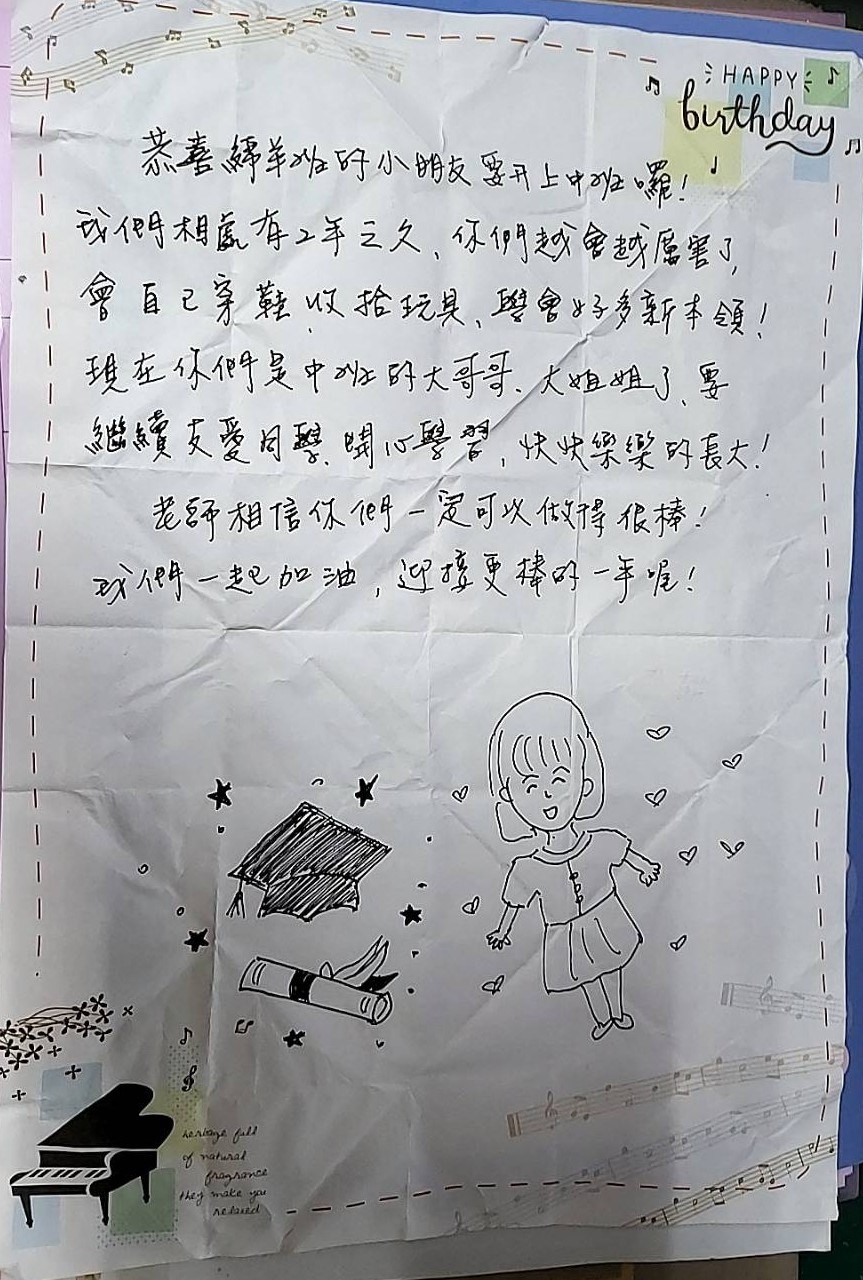 HAPPY
birthday
恭喜綿羊班的小朋友要升上中班囉!
我們相處有2年之久、你們越會越厲害了,
會自己穿鞋、收拾玩具、學會好多新本領!
現在你們是中班的大哥哥、大姐姐了、要
繼續友愛同學、開心學習,快快樂樂的長大!
老師相信你們一定可以做得很棒!
我們一起加油,迎接更棒的一年喔!
heritage full
of natural
fragrance
they make you
relaxed